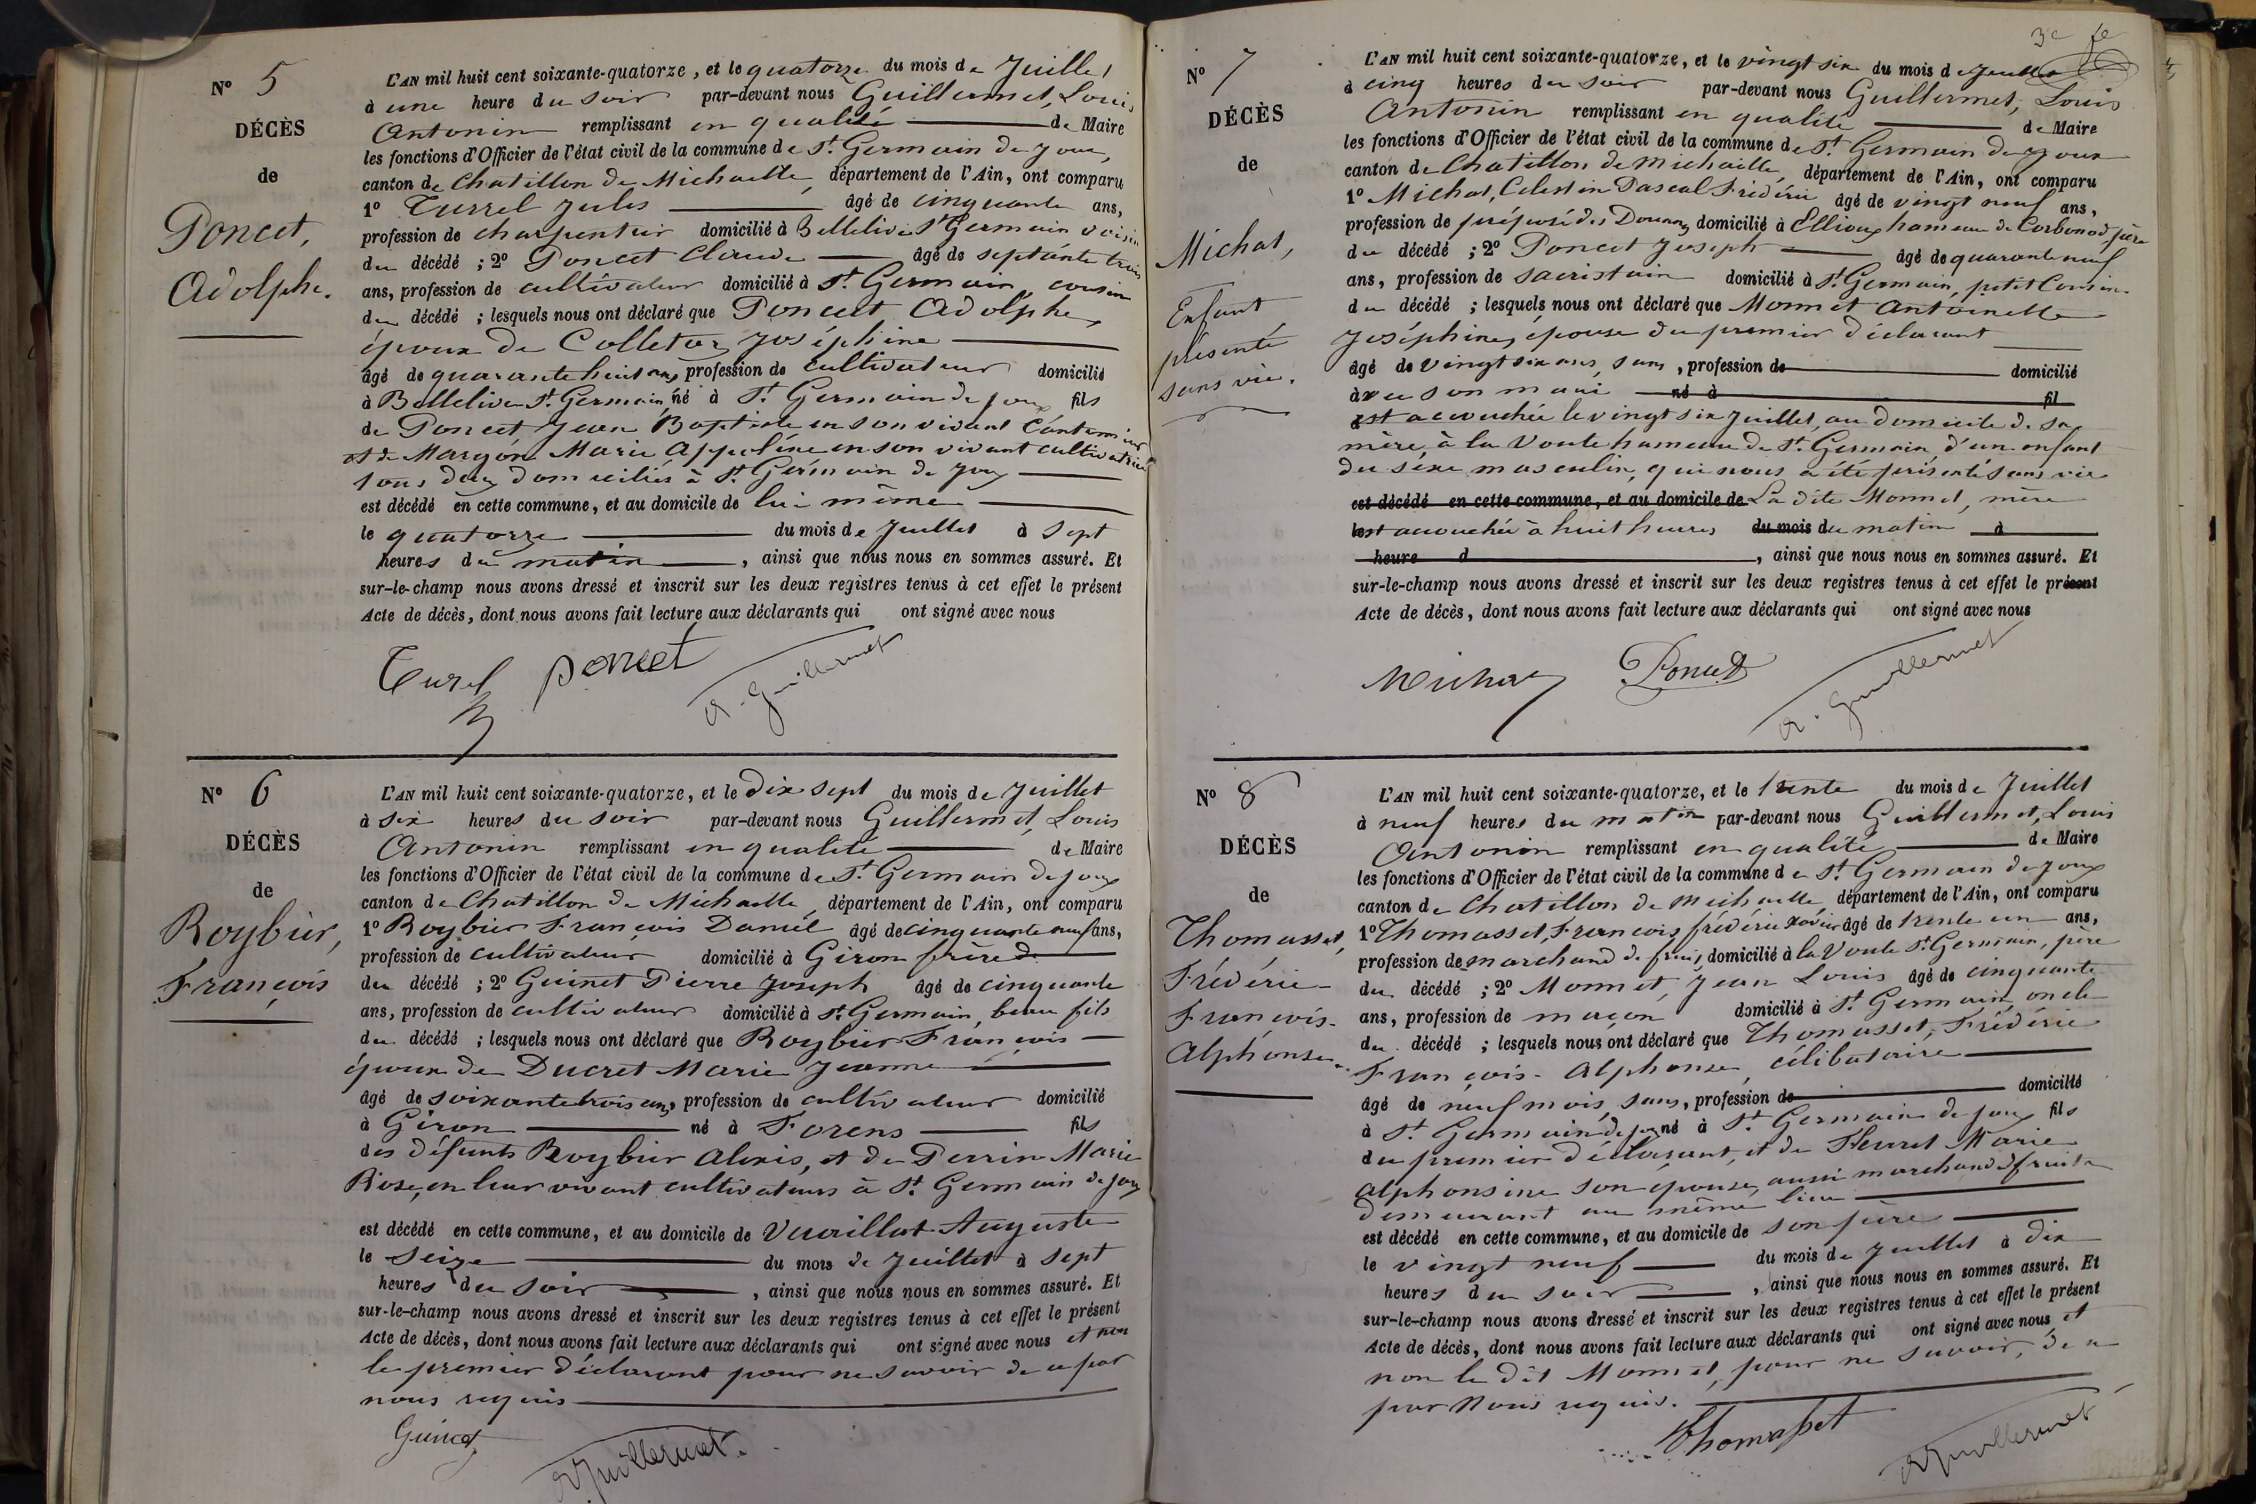 N° 5
DÉCÈS
de
Poncet,
Adolphe.
L'AN mil huit cent soixante-quatorze, et le quatorze du mois de Juillet
à une heure du soir par-devant nous Guillermet, Louis
Antonin remplissant en qualité de Maire
les fonctions d'Officier de l'état civil de la commune de St. Germain de Joux,
canton de Chatillon de Michaille, département de l'Ain, ont comparu
1° Turrel Jules âgé de cinquante ans,
profession de charpentier domicilié à Bellelive St Germain voisin
du décédé ; 2° Poncet Claude âgé de septante trois
ans, profession de cultivateur domicilié à St. Germain, cousin
du décédé ; lesquels nous ont déclaré que Poncet Adolphe,
époux de Colletaz Joséphine
âgé de quarante huit ans, profession de cultivateur domicilié
à Bellelive St. Germain, né à St. Germain de Joux fils
de Poncet, Jean Baptiste en son vivant
et de Marie Appoline en son vivant cultivatrice
tous deux domiciliés à St. Germain de Joux
est décédé en cette commune, et au domicile de lui même
le quatorze du mois de Juillet à sept
heures du matin, ainsi que nous nous en sommes assuré. Et
sur-le-champ nous avons dressé et inscrit sur les deux registres tenus à cet effet le présent
Acte de décès, dont nous avons fait lecture aux déclarants qui ont signé avec nous
Turel Poncet A. Guillermet
N° 6
DÉCÈS
de
Roybier,
François
L'AN mil huit cent soixante-quatorze, et le dix sept du mois de Juillet
à six heures du soir par-devant nous Guillermet, Louis
Antonin remplissant en qualité de Maire
les fonctions d'Officier de l'état civil de la commune de St. Germain de Joux
canton de Chatillon de Michaille, département de l'Ain, ont comparu
1° Roybier François Daniel âgé de cinquante neuf ans,
profession de cultivateur domicilié à Giron frère d
du décédé ; 2° Guinet Pierre Joseph âgé de cinquante
ans, profession de cultivateur domicilié à St. Germain, beau fils
du décédé ; lesquels nous ont déclaré que Roybier François
époux de Ducret Marie Jeanne
âgé de soixante trois ans, profession de cultivateur domicilié
à Giron né à Forens fils
des défunts Roybier Alexis, et de Perrin Marie
Rose, en leur vivant cultivateurs à St. Germain de Joux
est décédé en cette commune, et au domicile de Vuaillat Auguste
le seize du mois de Juillet à sept
heures du soir, ainsi que nous nous en sommes assuré. Et
sur-le-champ nous avons dressé et inscrit sur les deux registres tenus à cet effet le présent
Acte de décès, dont nous avons fait lecture aux déclarants qui ont signé avec nous et non
le premier déclarant pour ne savoir de ce par
nous requis
Guinet
A Guillermet
3e fe
N° 7
DÉCÈS
de
Michat,
Enfant
présenté
sans vie.
L'AN mil huit cent soixante-quatorze, et le vingt six du mois de Juillet
à cinq heures du soir par-devant nous Guillermet, Louis
Antonin remplissant en qualité de Maire
les fonctions d'Officier de l'état civil de la commune de St. Germain de Joux
canton de Chatillon de Michaille, département de l'Ain, ont comparu
1° Michat, Celestin Pascal Frédéric âgé de vingt neuf ans,
profession de préposé des Douanes domicilié à Ellioux hameau de Corbonod père
du décédé ; 2° Poncet Joseph âgé de quarante neuf
ans, profession de sacristain domicilié à St. Germain, petit Cousin
du décédé ; lesquels nous ont déclaré que Monnet Antoinette
Joséphine, épouse du premier déclarant
âgé de vingt six ans, sans, profession de domicilié
avec son mari né à fil
est accouchée le vingt six Juillet, au domicile de sa
mère, à la Voute hameau de St. Germain, d'un enfant
du sexe masculin, qui nous a été présenté sans vie
est décédé en cette commune, et au domicile de La dite Monnet, mère
est accouchée à huit heures du mois du matin à
heure d, ainsi que nous nous en sommes assuré. Et
sur-le-champ nous avons dressé et inscrit sur les deux registres tenus à cet effet le présent
Acte de décès, dont nous avons fait lecture aux déclarants qui ont signé avec nous
Michat Poncet A. Guillermet
N° 8
DÉCÈS
de
Thomasset,
Frédéric-
François-
Alphonse.
L'AN mil huit cent soixante-quatorze, et le trente du mois de Juillet
à neuf heures du matin par-devant nous Guillermet, Louis
Antonin remplissant en qualité de Maire
les fonctions d'Officier de l'état civil de la commune de St. Germain de Joux
canton de Chatillon de Michaille, département de l'Ain, ont comparu
1° Thomasset, François frédéric Xavier âgé de trente un ans,
profession de marchand de fruits, domicilié à la Voute St. Germain, père
du décédé ; 2° Monnet, Jean Louis âgé de cinquante
ans, profession de maçon domicilié à St. Germain, oncle
du décédé ; lesquels nous ont déclaré que Thomasset, Frédéric
François-Alphonse, célibataire
âgé de neuf mois, sans, profession de domicilié
à St. Germain de Joux né à St. Germain de Joux fils
du premier déclarant, et de Marie
Alphonsine son épouse, aussi marchande de fruits
demeurant au même lieu
est décédé en cette commune, et au domicile de son père
le vingt neuf du mois de Juillet à dix
heures du soir, ainsi que nous nous en sommes assuré. Et
sur-le-champ nous avons dressé et inscrit sur les deux registres tenus à cet effet le présent
Acte de décès, dont nous avons fait lecture aux déclarants qui ont signé avec nous, et
non le dit Monnet, pour ne savoir, de ce
par Nous requis.
Thomasset
A Guillermet